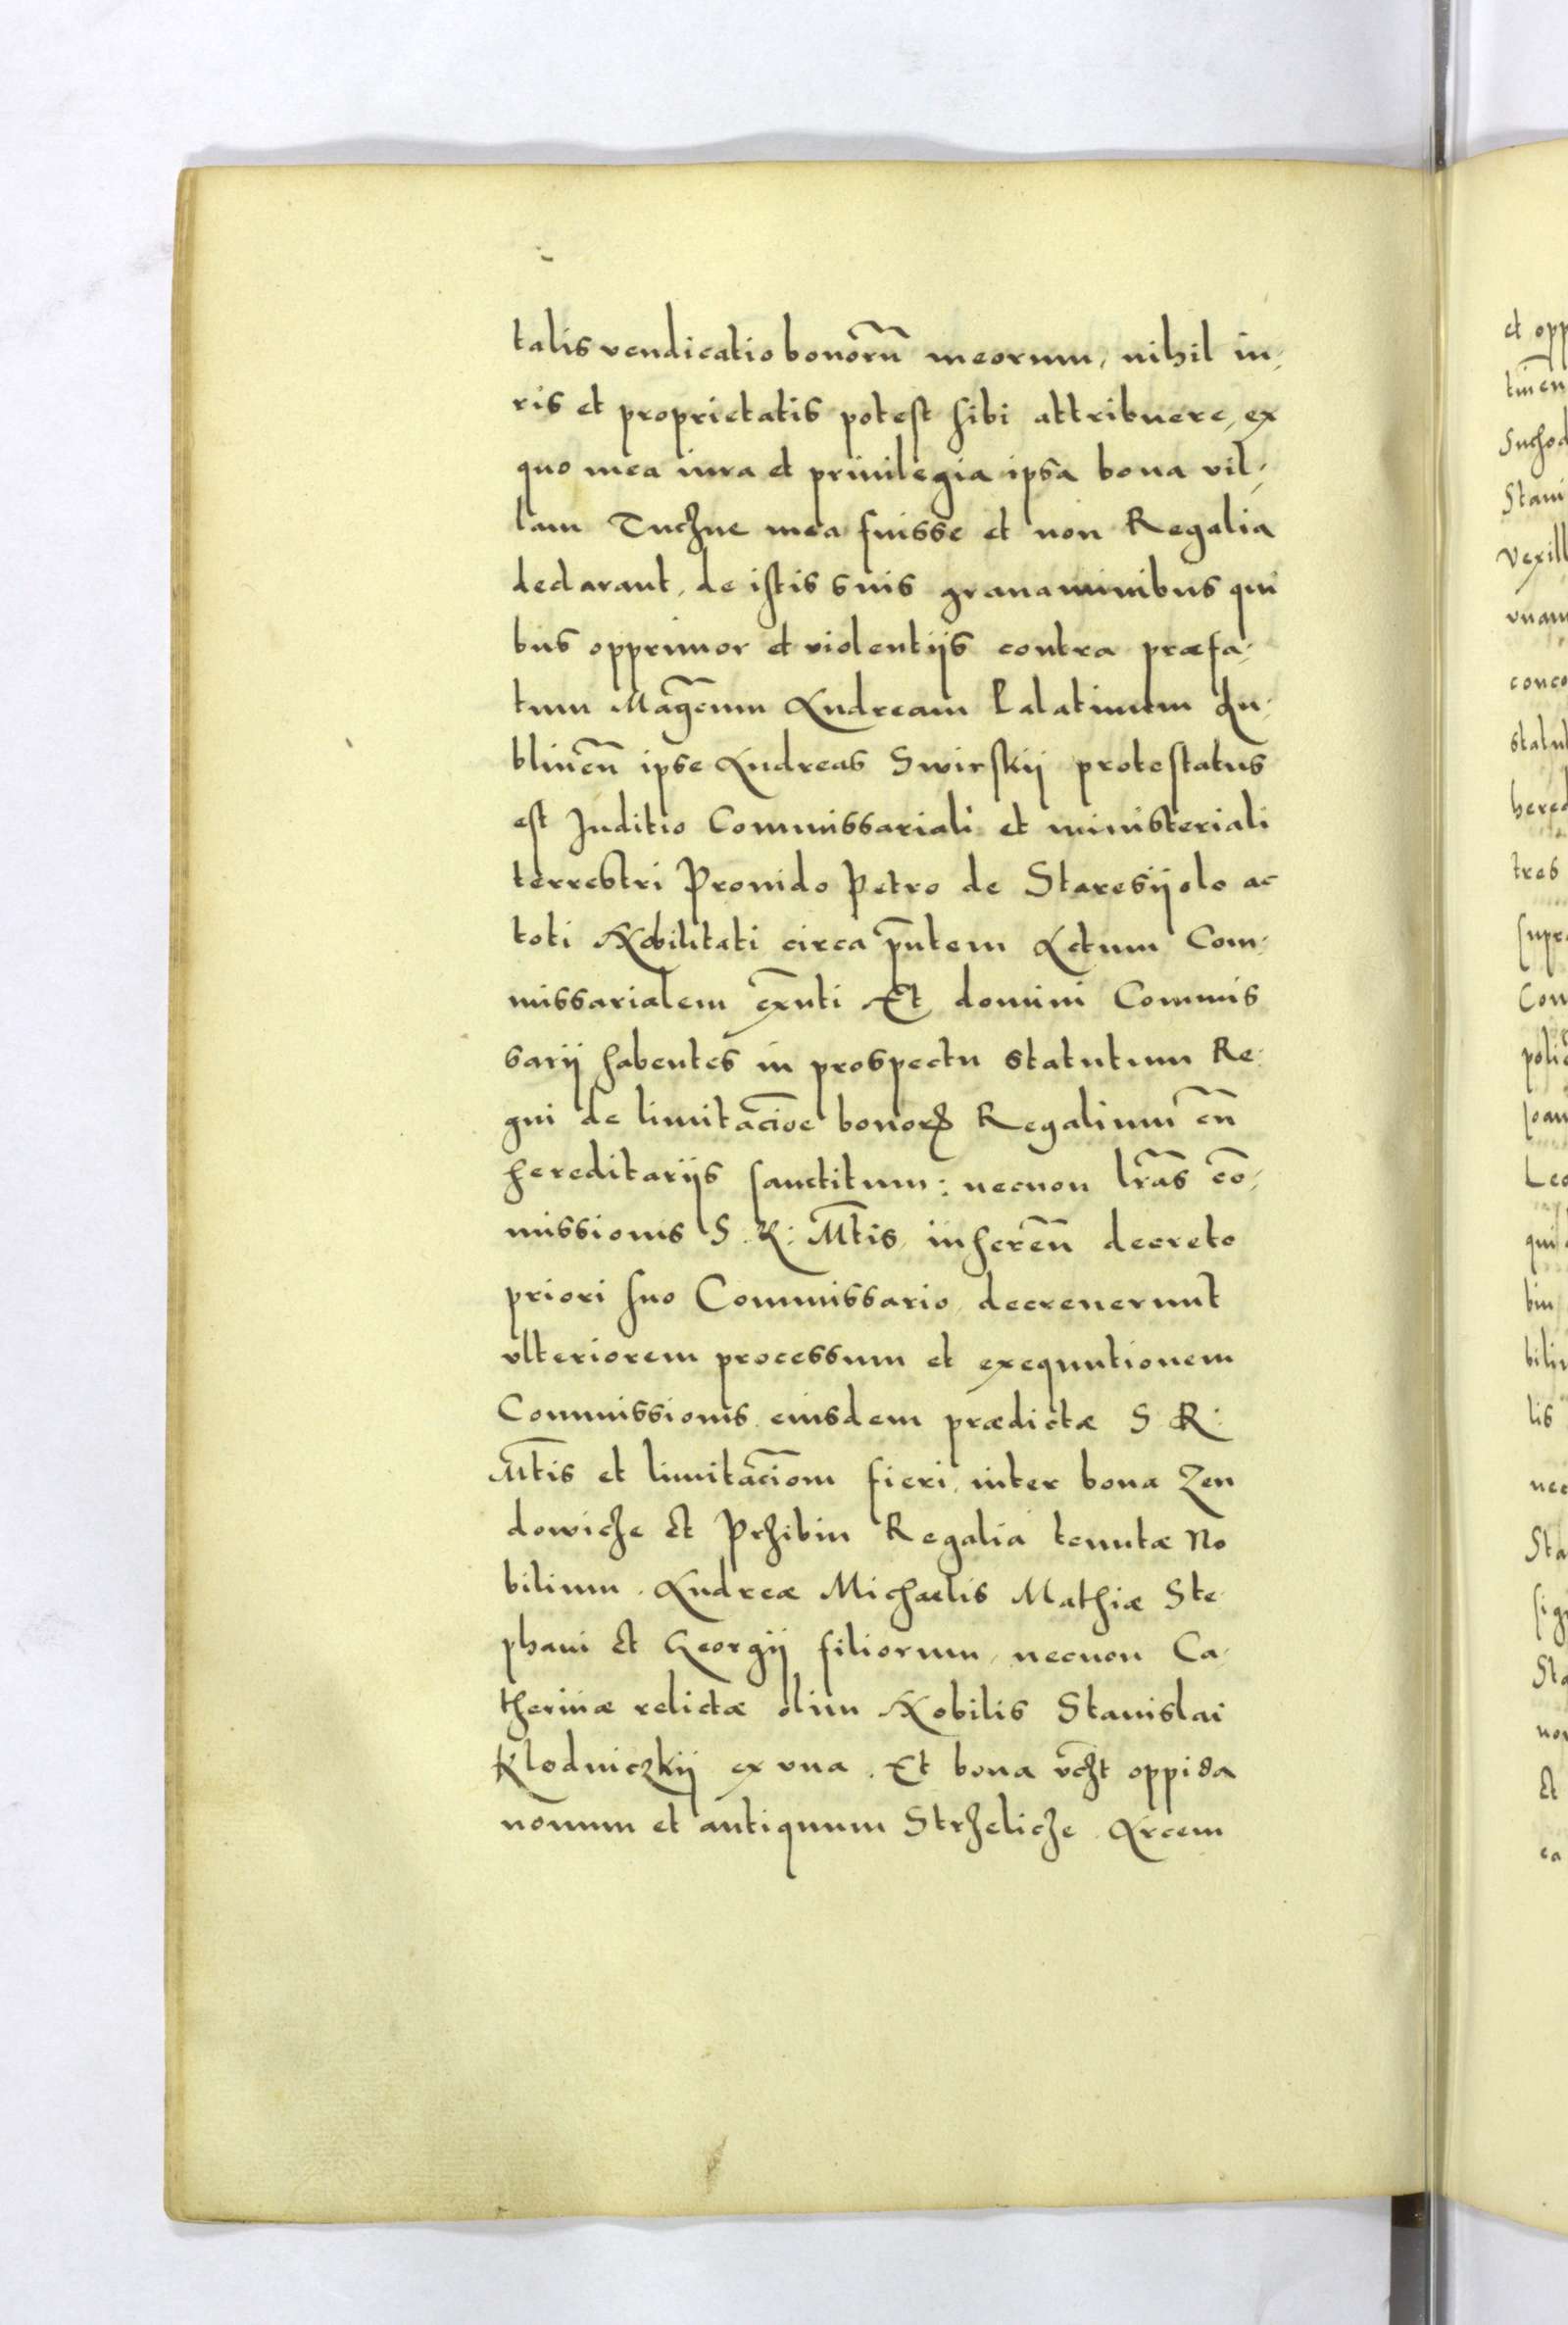 talis vendicatio bonorū meorum, nihil iu-
ris et proprietatis potest sibi attribuere, ex
quo mea iura et priuilegia ipsa bona vil-
lam Tuczne mea fuisse et non Regalia
declarant, de istis suis grauaminibus qui
bus opprimor et violentijs contra præfa-
tum Mag̃cum Andream Palatinum Lu-
blineñ ipse Andreas Swirskij protestatus
est Juditio Commissariali et ministeriali
terrestri Prouido Petro de Staresijolo ac
toti Nobilitati circa p̃ntem Actum Com-
missarialem ex̃nti Et domini Commis
sarij habentes in prospectu statutum Re-
gni de limitac̃ioe bonorꝝ Regalium cũ
hereditarijs sanctitum: necnon lr̃as cõ-
missionis S. R: M̃tis, inhereñ decreto
priori suo Commissario, decreuerunt
vlteriorem processum et exequutionem
Commissionis eiusdem prædictæ S R:
M̃tis et limitac̃iom fieri, inter bona Zen
dowicze et Przibin Regalia tenutæ No
bilium. Andreæ Michaelis Mathiæ Ste-
phani et Georgij filiorum, necnon Ca-
therinæ relictæ olim Nobilis Stanislai
Klodniczkij ex vna. Et bona vcz̃t oppida
nouum et antiquum Strzelicze. Arcem
et opp
Suchod
Stani
vexill
vnam
conco
statut
hered
tres
supra
Com
Leo
qui
bin
bili
lis
nec
Sta
sig
Sta
non
et
ca